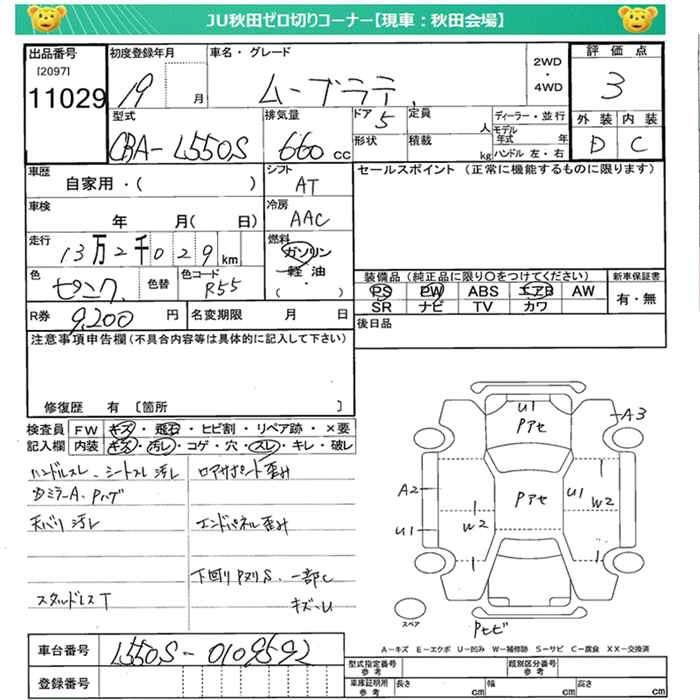 JU秋田ゼロ切りコーナー【現車：秋田会場】
出品番号
[2097]
11029
初度登録年月
19 月
車名・グレード
ムーブラテ
2WD
・
4WD
評価点
3
型式
CBA-L550S
排気量
660 cc
ドア 5
形状
定員 人
積載 kg
ディーラー・並行
モデル年式 年
ハンドル 左・右
外装 内装
D C
車歴
自家用・( )
シフト
AT
セールスポイント (正常に機能するものに限ります)
車検
年 月( 日)
冷房
AAC
走行
13万2千029km
燃料
ガソリン
軽油
・
( )
色
ピンク
色替
色コード
R55
装備品 (純正品に限り○をつけてください)
PS PW ABS エアB AW
SR ナビ TV カワ
新車保証書
有・無
R券 9,200 円
名変期限 月 日
後日品
注意事項申告欄(不具合内容等は具体的に記入して下さい)
修復歴 有 〔箇所 〕
検査員記入欄
FW キズ・飛石・ヒビ割・リペア跡・×要
内装 キズ・汚レ・コゲ・穴・スレ・キレ・破レ
ハンドルスレ、シートスレ 汚レ
DミラーA、Pハゲ
天バリ 汚レ
スタッドレスT
ロアサポート歪み
エンドパネル歪み
下回りPヌリS、一部C
キズ・U
U1
Pアセ
A3
A2
Pアセ
U1
W2
W2
U1
スペア
Pセビ
A-キズ E-エクボ U-凹み W-補修跡 S-サビ C-腐食 XX-交換済
車台番号
L550S-0109592
登録番号
型式指定番号
参考
類別区分番号
参考
車庫証明用
参考
長さ cm
幅 cm
高さ cm